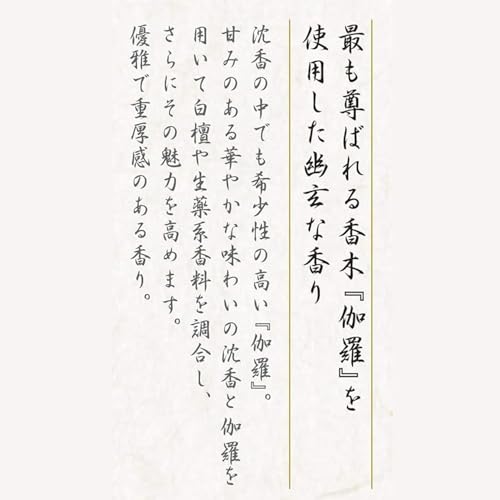 最も尊ばれる香木『伽羅』を
使用した幽玄な香り
沈香の中でも希少性の高い『伽羅』。
甘みのある華やかな味わいの沈香と伽羅を
用いて白檀や生薬系香料を調合し、
さらにその魅力を高めます。
優雅で重厚感のある香り。